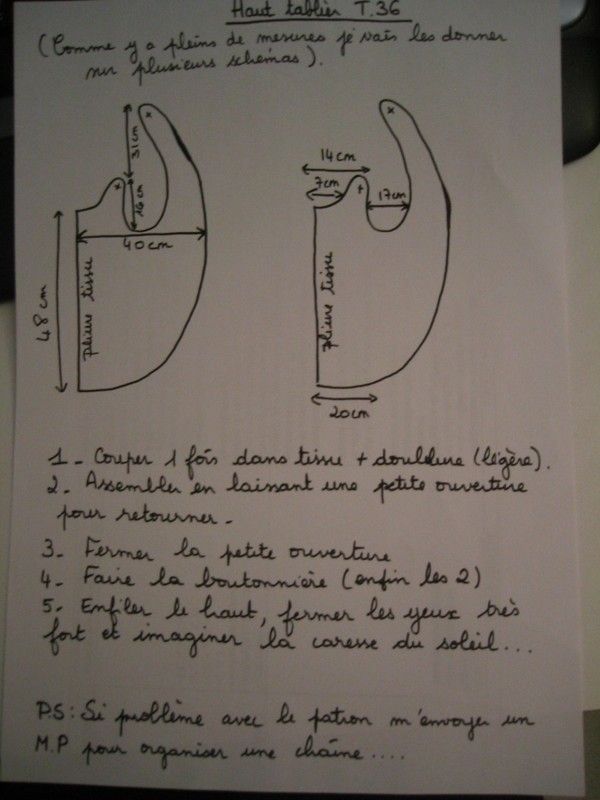 Haut tablier T.36
(Comme y a pleins de mesures je vais les donner
sur plusieurs schémas).
x
31cm
x
16cm
40cm
48cm
pliure tissu
x
14cm
7cm
+
17cm
pliure tissu
20cm
1- Couper 1 fois dans tissu + doublure (légère).
2- Assembler en laissant une petite ouverture
pour retourner-
3- Fermer la petite ouverture
4- Faire la boutonnière (enfin les 2)
5- Enfiler le haut, fermer les yeux très
fort et imaginer la caresse du soleil...
P.S: Si problème avec le patron m'envoyer un
M.P pour organiser une chaîne....